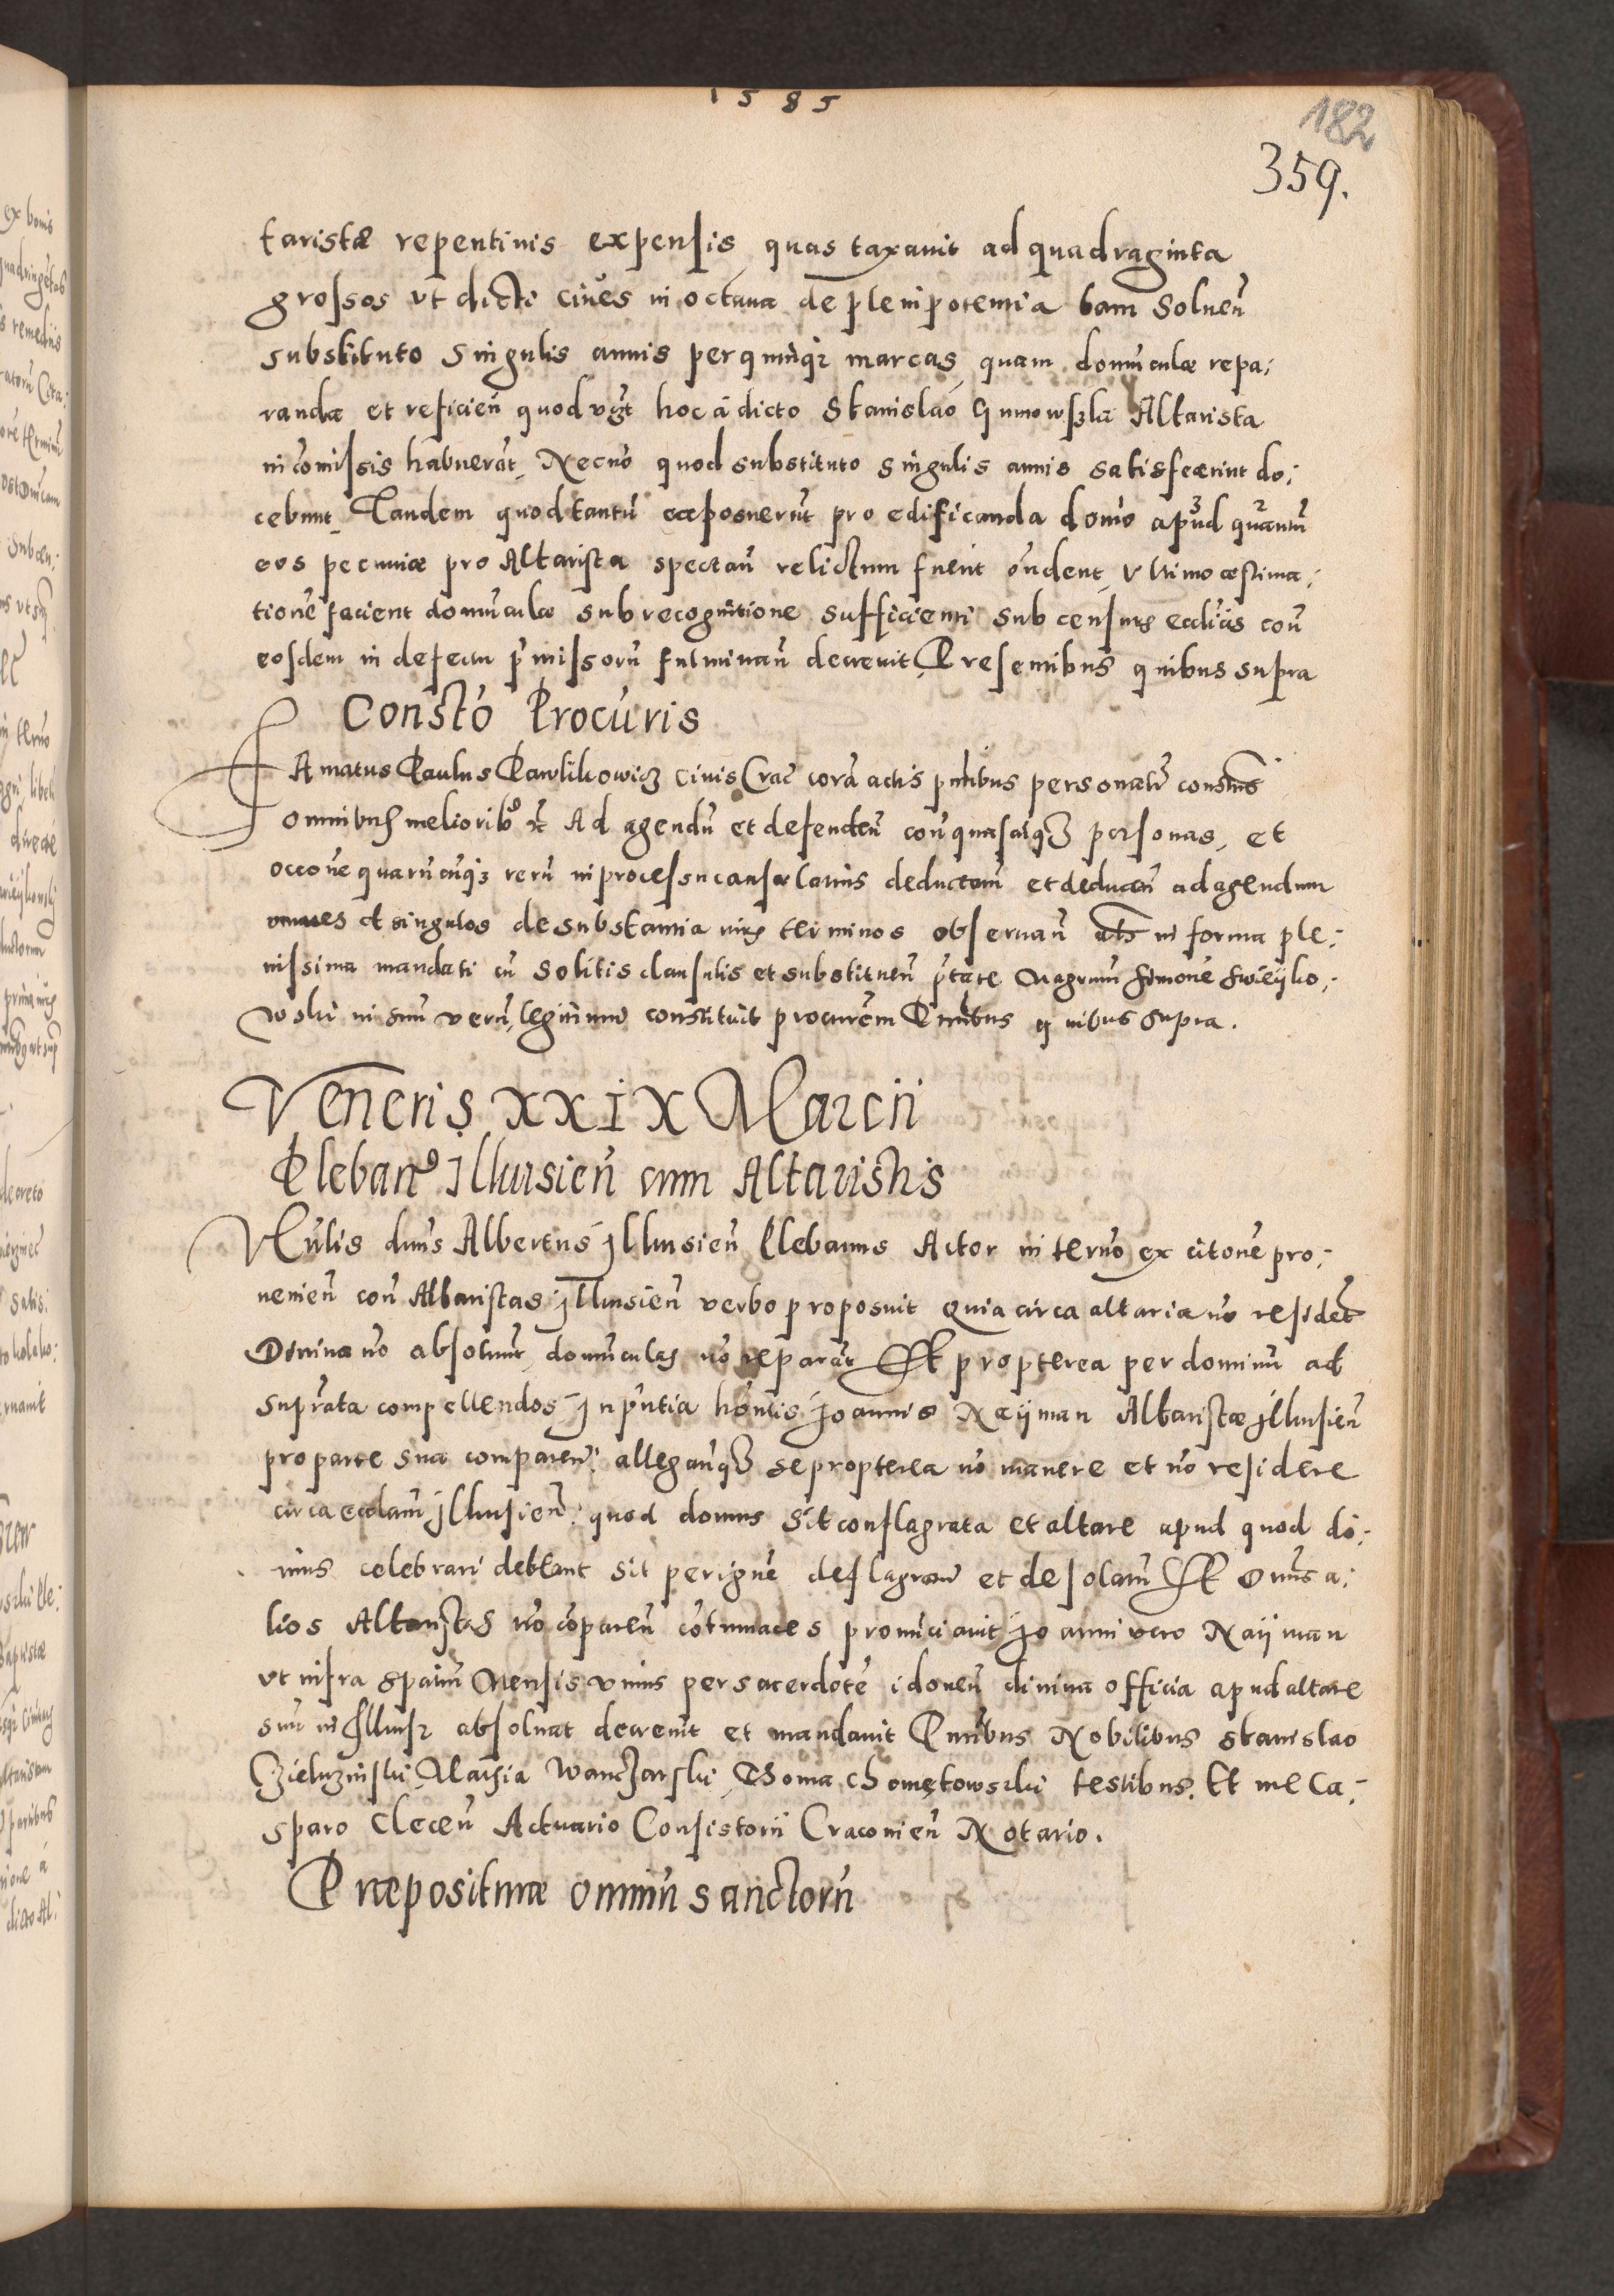 1585
182
359.
taristæ repentinis expensis quas taxavit ad quadraginta
grossos ut dicti cives in octava de plenipotentia tam Soluen̄
substituto Singulis annis per quinqꝫ marcas quam domunculæ repa:
randæ et reficien̄ quod hoc à dicto Stanislao Altarista
in com̄issis habuerāt, Necnō quod substituto singulis annis satisfecerint do:
cebunt, Tandem quod tantū exposuerūt pro edificanda domo apud quantū
eos pecuniæ pro Altarista spectan̄ relictum fuerit ondent, Ultimo æstima:
tionē facient domunculæ sub recognitione sufficienti sub censuris ecclicis con̄
eosdem in defectu p̄missorū fulminan̄ decrevit Presentibus quibus supra
Consto Procuris
Famatus Paulus Pawlikowicz Civis Crac̄ corā actis pn̄tibus personalr̄ constitus
omnibus melioribꝰ etc̄ Ad agendū et defenden̄ con̄ quascūqꝫ personas, et
occōne quarūcūqꝫ rerū in processu causæ latius deductam̄ et deducen̄ ad agendum
omnes et singulos de substantia iuris terminos observan̄ als̄ in forma ple:
nissima mandati cū solitis clausulis et substituen̄ p̄tate Magrum̄ Simonē Swieyko:
wski in suū verū, legitimū constituit procurem̄ Pn̄tibus quibus Supra.
Veneris XXIX Marcii
Plebanꝰ Illkusien̄ cum Altaristis
Vnlis dnūs Albertus Illkusien̄ Plebanus Actor in ternō ex citone pro:
venien̄ con̄ Altaristas Illkusien̄ verbo proposuit Quia circa altaria nō resident
Divina nō absolvunt, domunculas nō reparāt Et propterea per dominū ad
suprata compellendos In pn̄tia hon̄lis Joannis Nayman Altaristæ Illkusien̄
pro parte sua comparen̄: allegan̄qꝫ se propterea nō manere et nō residere
circa eccliam̄ Illkusien̄: quod domus Sit conflagrata et altare apud quod di:
vina celebrari debeant sit per ignē deflagratū et desolatū Et Omēs a:
lios Altaristas nō cōparen̄ cōtumaces pronunciavit Joanni vero Nayman
ut infra spatiū Mensis unius per sacerdotē idoneū divina officia apud altare
suū in Illkusz absoluat decrevit et mandavit Pn̄tibus Nobilibus Stanislao
Zieluzinski, Mathia Wanczarski, Thoma Chomętowski testibus. Et me Ca:
sparo Clecen̄ Actuario Consistorii Cracovien̄ Notario.
Præpositurae omniū sanctorū